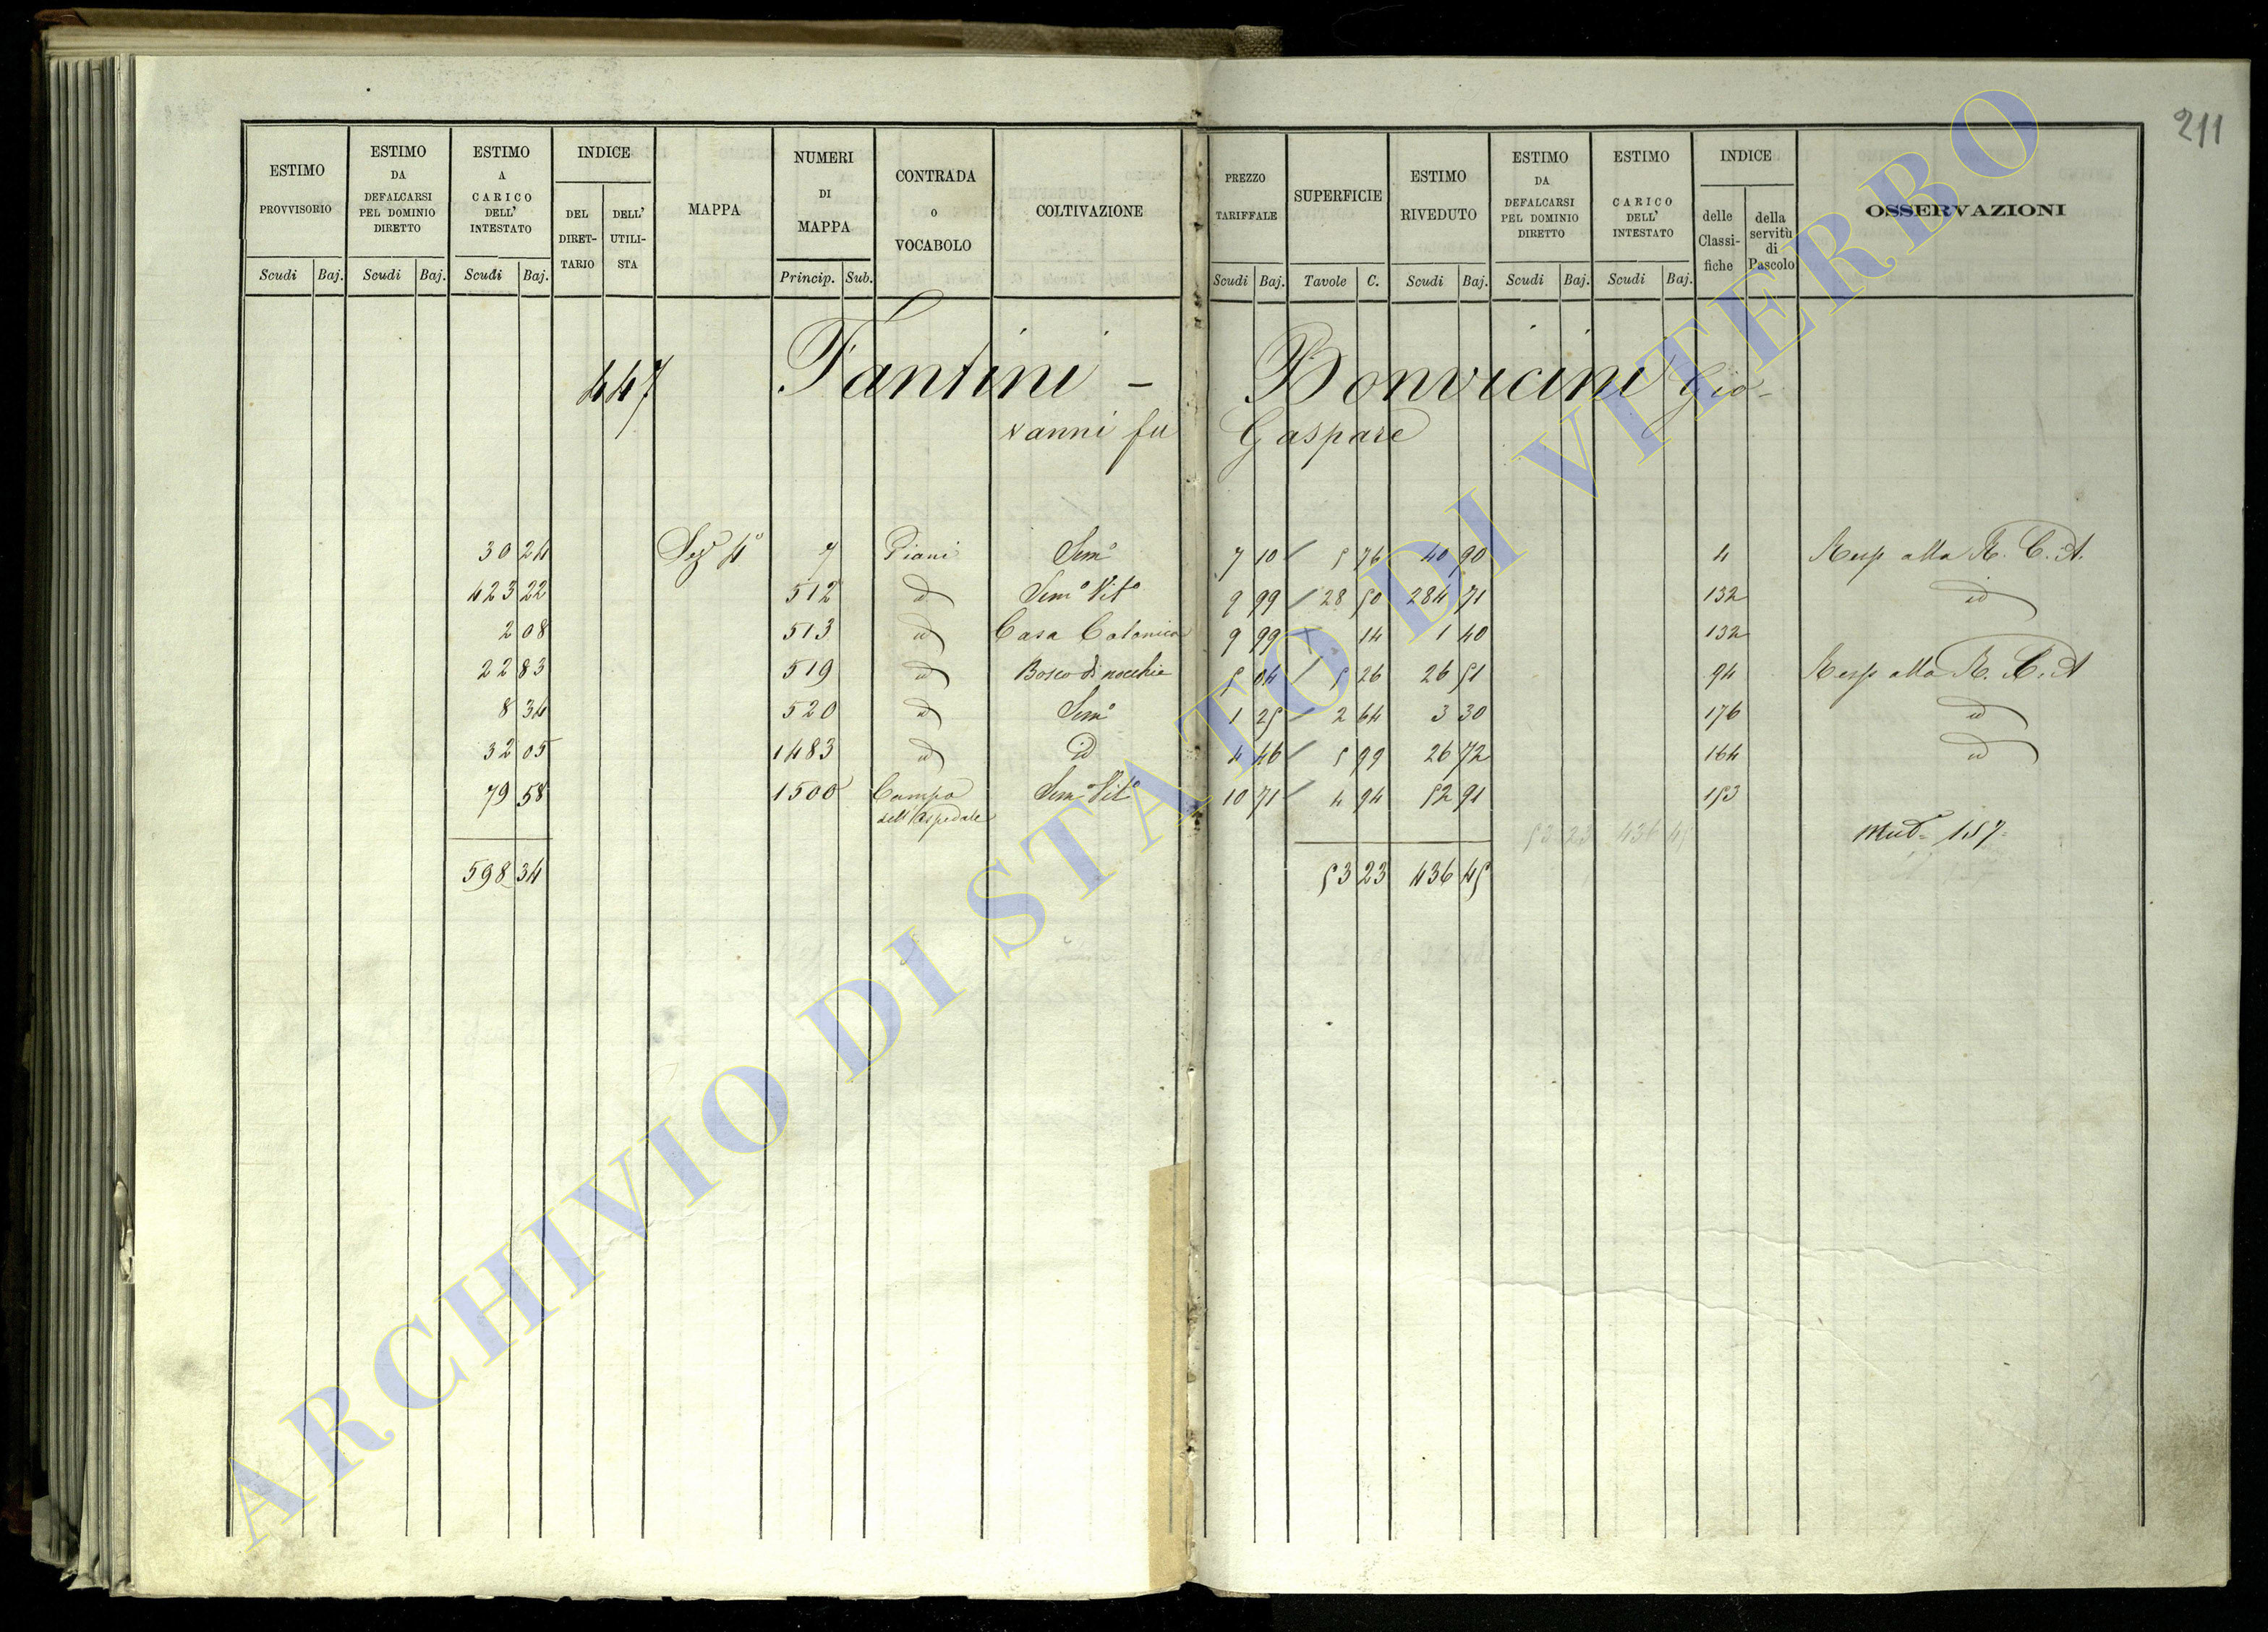 211
ESTIMO PROVVISORIO Scudi Baj.
ESTIMO DA DEFALCARSI PEL DOMINIO DIRETTO Scudi Baj.
ESTIMO A CARICO DELL' INTESTATO Scudi Baj.
INDICE DEL DIRET-TARIO DELL' UTILI-STA
MAPPA
NUMERI DI MAPPA Princip. Sub.
CONTRADA O VOCABOLO
COLTIVAZIONE
PREZZO TARIFFALE Scudi Baj.
SUPERFICIE Tavole C.
ESTIMO RIVEDUTO Scudi Baj.
ESTIMO DA DEFALCARSI PEL DOMINIO DIRETTO Scudi Baj.
ESTIMO A CARICO DELL' INTESTATO Scudi Baj.
INDICE delle Classi-fiche della servitù di Pascolo
OSSERVAZIONI
447 Fantini - Bonvicini Gio-
vanni fu Gaspare
30 24 Sez. 4ª 7 Piani Semº 7 10 / 5 76 40 90 4 Resp alla R. C. A.
423 22 512 id Semº Vitº 9 99 / 28 50 284 71 132 id
2 08 513 id Casa Colonica 9 99 14 1 40 132
22 83 519 id Bosco di nocchie 5 04 / 5 26 26 51 94 Resp alla R. C. A
8 34 520 id Semº 1 25 / 2 64 3 30 176 id
32 05 1483 id id 4 46 / 5 99 26 72 164 id
79 58 1500 Campo dell'Ospedale Semº Vitº 10 71 / 4 94 52 91 153
53 23 436 45 Mutª 157
598 34 53 23 436 45
ARCHIVIO DI STATO DI VITERBO